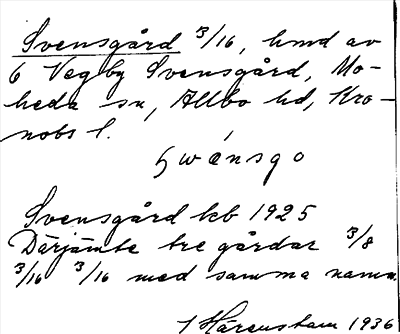 Svensgård 3/16, hmd av
6 Vegby Svensgård, Mo-
heda sn, Allbo hd, Kro-
nobs l.
Svensgård kb 1925
Därjämte tre gårdar 3/8
3/16 3/16 med samma namn.
I Härenstam 1936